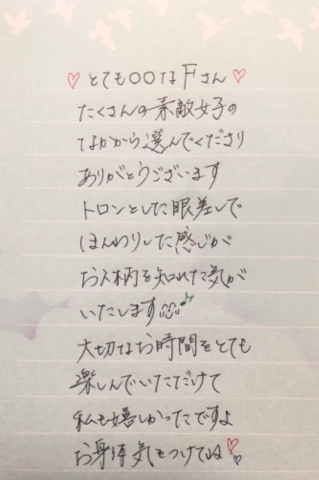 ♡とても○○なFさん♡
たくさんの素敵女子の
なかから選んでくださり
ありがとうございます
トロンとした眼差しで
ほんわりした感じが
お人柄を知れた気が
いたします♪
大切なお時間をとても
楽しんでいただけて
私も嬉しかったですよ
お身体気をつけてね♡♡